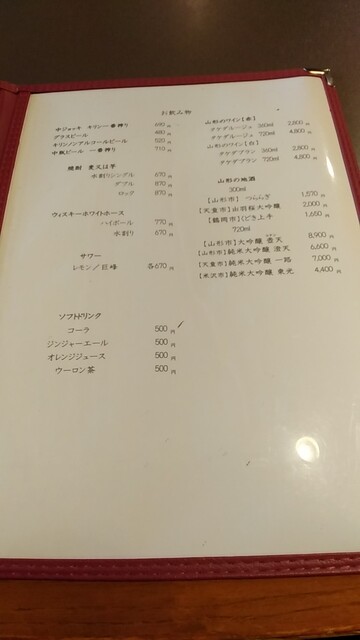 お飲み物
中ジョッキ キリン一番搾り 690円
グラスビール 480円
キリンノンアルコールビール 520円
中瓶ビール 一番搾り 710円
焼酎 麦又は芋
水割りシングル 670円
ダブル 870円
ロック 870円
ウィスキーホワイトホース
ハイボール 770円
水割り 670円
サワー
レモン／巨峰 各670円
ソフトドリンク
コーラ 500円
ジンジャーエール 500円
オレンジジュース 500円
ウーロン茶 500円
山形のワイン【赤】
タケダルージュ 360ml 2,800円
タケダルージュ 720ml 4,800円
山形のワイン【白】
タケダブラン 360ml 2,800円
タケダブラン 720ml 4,800円
山形の地酒
300ml
【山形市】 つららぎ 1,570円
【天童市】出羽桜大吟醸 2,000円
【鶴岡市】くどき上手 1,650円
720ml
【山形市】大吟醸 壺天 8,900円
【山形市】純米大吟醸 澄天 6,600円
【天童市】純米大吟醸 一路 7,000円
【米沢市】純米大吟醸 東光 4,400円